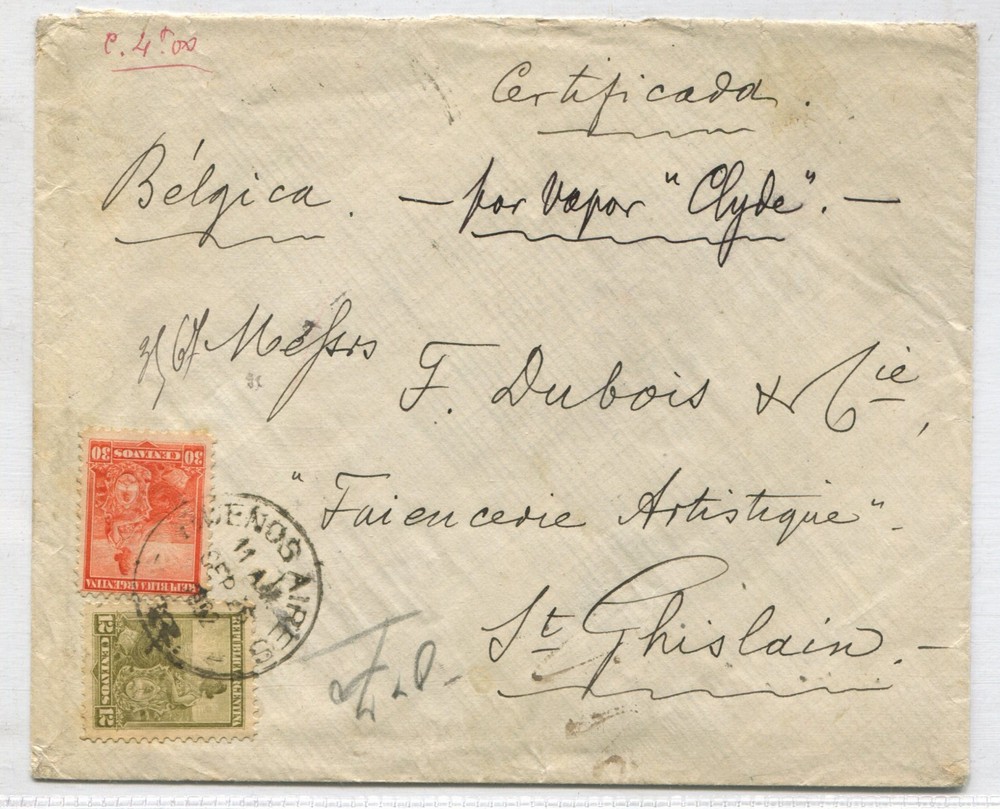 Certificada.
Bélgica. — por vapor "Clyde". —
Messrs
F. Dubois & Cie,
"Faiencerie Artistique".
St Ghislain. —
30 CENTAVOS 30
REPUBLICA ARGENTINA
BUENOS AIRES
11 AM
SEP 25
1902
12 CENTAVOS 12
REPUBLICA ARGENTINA